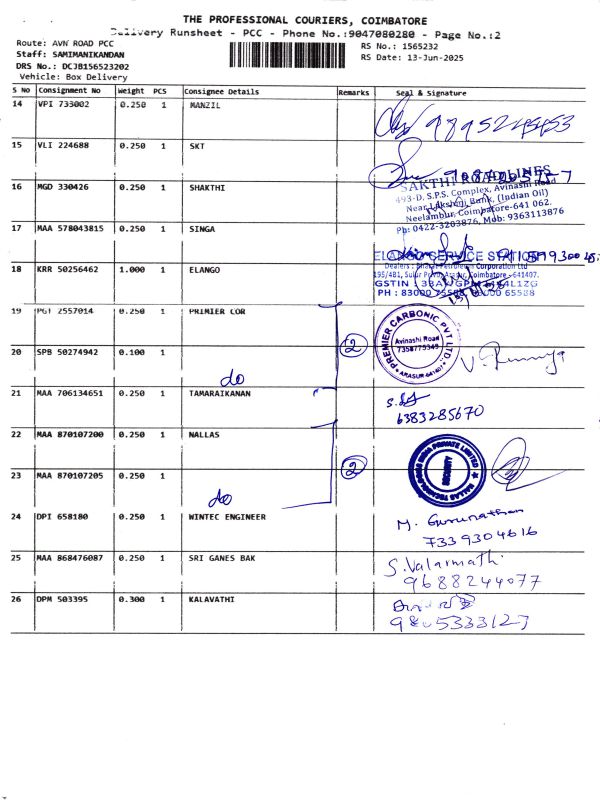 THE PROFESSIONAL COURIERS, COIMBATORE
Delivery Runsheet - PCC - Phone No.:9047080280 - Page No.:2
Route: AVN ROAD PCC
RS No.: 1565232
Staff: SAMIMANIKANDAN
RS Date: 13-Jun-2025
DRS No.: DCJB156523202
Vehicle: Box Delivery
S No Consignment No Weight PCS Consignee Details Remarks Seal & Signature
14 VPI 733002 0.250 1 MANZIL
9895245453
15 VLI 224688 0.250 1 SKT
16 MGD 330426 0.250 1 SHAKTHI
SAKTHI ROADLINES
493-D, S.P.S. Complex, Avinashi Road
Near Lakshmi Bank, (Indian Oil)
Neelambur, Coimbatore-641 062.
Ph: 0422-3203876, Mob: 9363113876
17 MAA 578043815 0.250 1 SINGA
18 KRR 50256462 1.000 1 ELANGO
ELANGO SERVICE STATION
Dealers: Bharat Petroleum Corporation Ltd
Coimbatore -641407.
19 PGT 2557014 0.250 1 PREMIER COR
PREMIER CARBONIC PVT. LTD.
Avinashi Road
ARASUR-641407
20 SPB 50274942 0.100 1
do
2
21 MAA 706134651 0.250 1 TAMARAIKANAN
6383285670
22 MAA 870107200 0.250 1 NALLAS
NALLAS TECHNOLOGIES INDIA PRIVATE LIMITED
SECURITY
23 MAA 870107205 0.250 1
do
2
24 DPI 658180 0.250 1 WINTEC ENGINEER
M. Gurunathan
7339304616
25 MAA 868476087 0.250 1 SRI GANES BAK
S. Valarmathi
9688244077
26 DPM 503395 0.300 1 KALAVATHI